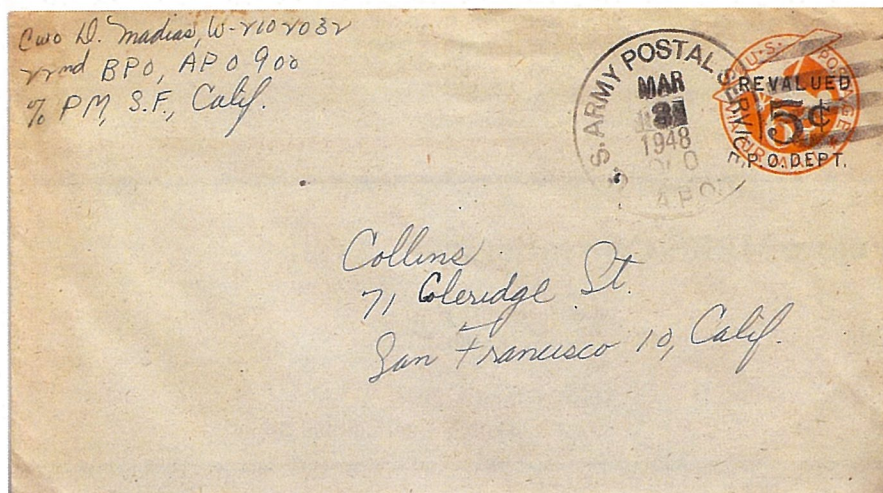 Cwo D. Madias, W-2102032
22nd BPO, APO 900
% PM, S.F., Calif.
U.S. ARMY POSTAL SERVICE
MAR
1948
APO
U.S. POSTAGE
AIR MAIL
REVALUED
5¢
P.O.DEPT.
Collins
71 Coleridge St.
San Francisco 10, Calif.